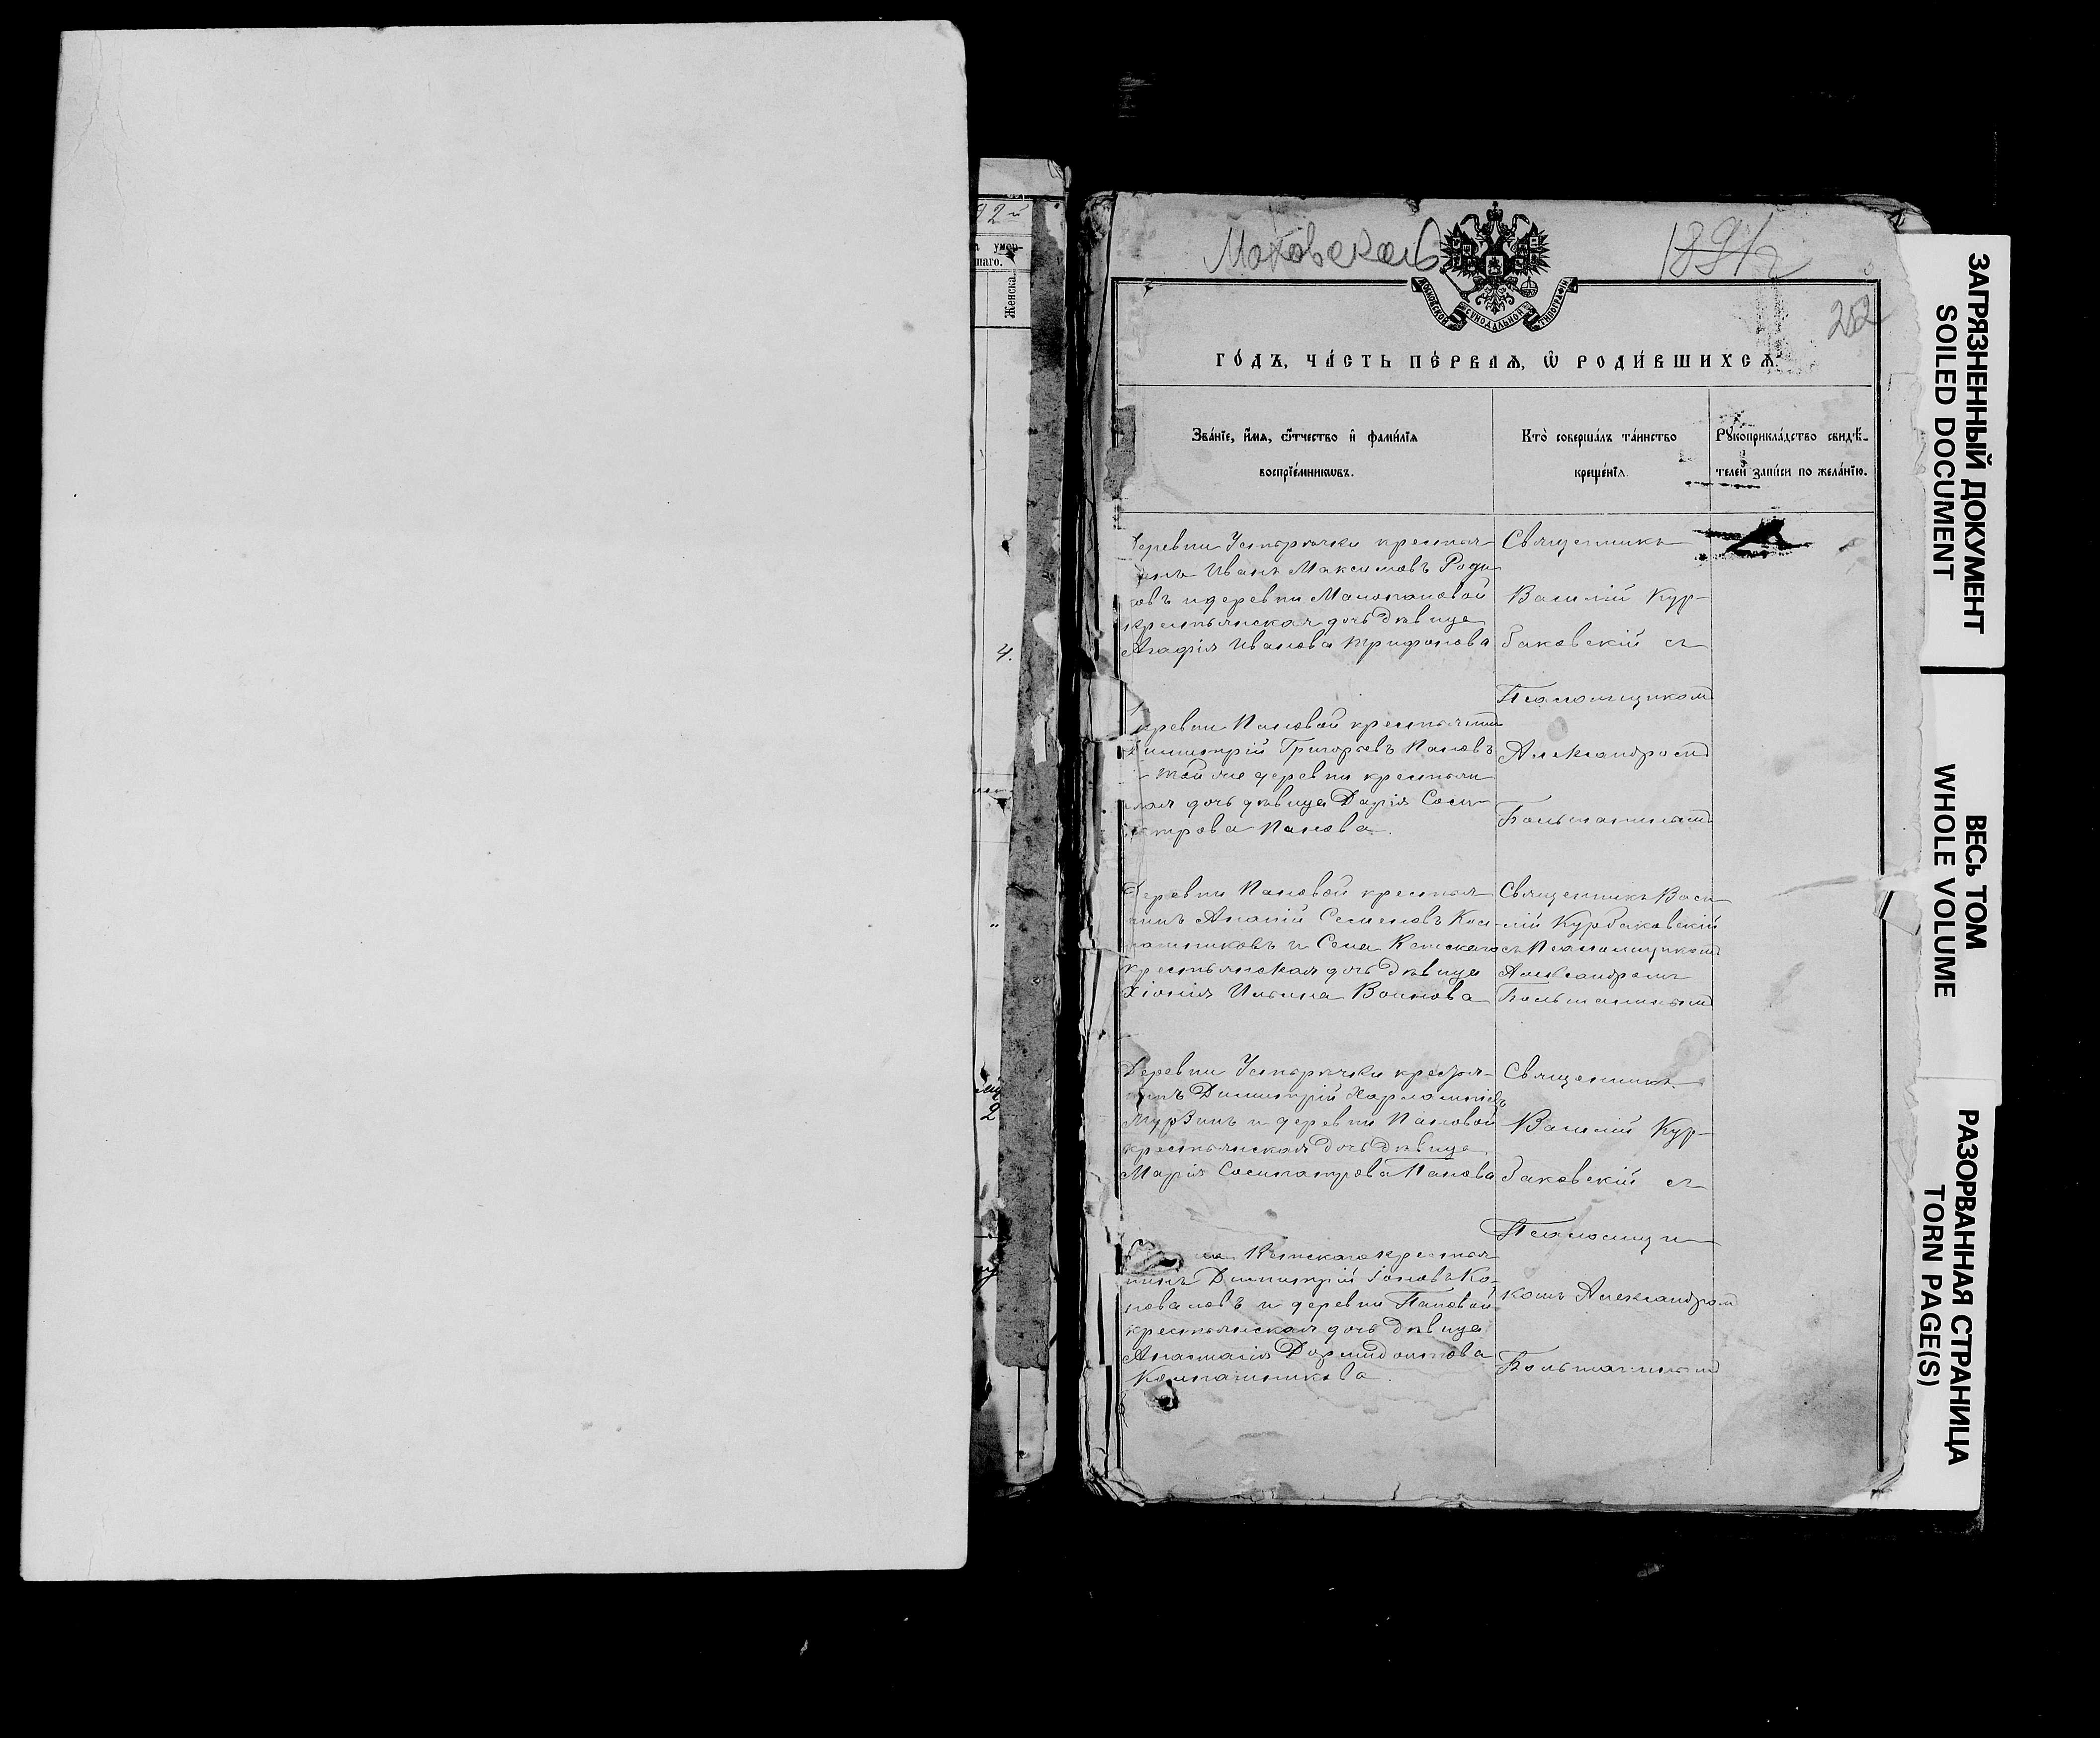 92й
умер-
шаго.
Женска
4.
"
2
Маковской
1891 г
252
МОСКОВСКОЙ СѴНОДАЛЬНОЙ ТИПОГРАФІИ
ГО́ДЪ, ЧА́СТЬ ПЕ́РВАѦ, Ѡ҆ РОДИ́ВШИХСѦ.
Зва́нїе, и҆́мѧ, ѻ҆́тчество и҆ фами́лїѧ
воспрїе́мникѡвъ.
Кто̀ соверша́лъ та́инство
креще́нїѧ.
Рꙋкоприкла́дство свидѣ́-
телей за́писи по жела́нїю.
Деревни Устьрѣчки крестья-
нинъ Иванъ Максимовъ Роди
ковъ и деревни Малопановой
крестьянская дочь дѣвица
Агафія Иванова Трифонова
Священникъ
Василій Кур-
баковскій съ
Псаломщикомъ
Александромъ
Большанинымъ
Деревни Пановой крестьянинъ
Димитрій Григорьевъ Пановъ
и той же деревни крестьян
ская дочь дѣвица Дарія Соси-
патрова Панова.
Деревни Пановой крестья-
нинъ Ананій Семеновъ Кол-
пашниковъ и Села Кетскаго
крестьянская дочь дѣвица
Хіонія Ильина Воинова
Священникъ Васи-
лій Курбаковскій
съ Псаломщикомъ
Александромъ
Большанинымъ
Деревни Устьрѣчки крестья-
нинъ Димитрій Харлампіевъ
Мурзинъ и деревни Пановой
крестьянская дочь дѣвица
Марія Сосипатрова Панова
Священникъ
Василій Кур-
баковскій съ
Псаломщи-
комъ Александромъ
Большанинымъ
Кетскаго крестья
нинъ Димитрій Іоновъ Ко-
новаловъ и деревни Пановой
крестьянская дочь дѣвица
Анастасія Дормидонтова
Колпашникова.
ЗАГРЯЗНЕННЫЙ ДОКУМЕНТ
SOILED DOCUMENT
ВЕСЬ ТОМ
WHOLE VOLUME
РАЗОРВАННАЯ СТРАНИЦА
TORN PAGE(S)